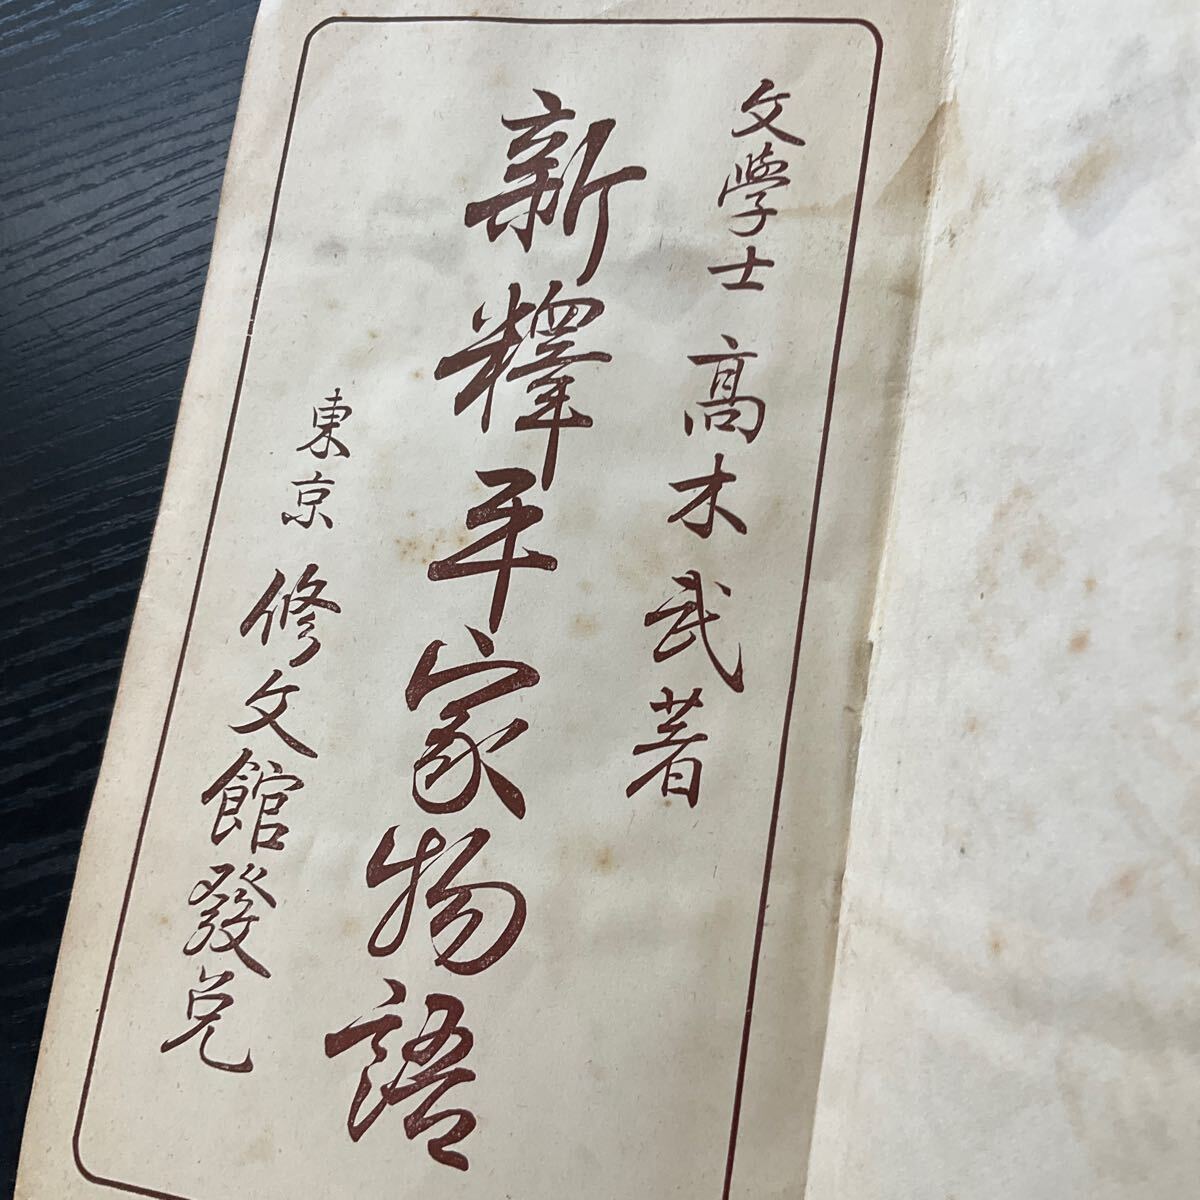 文學士 高木武著
新釋平家物語
東京 修文館發兌